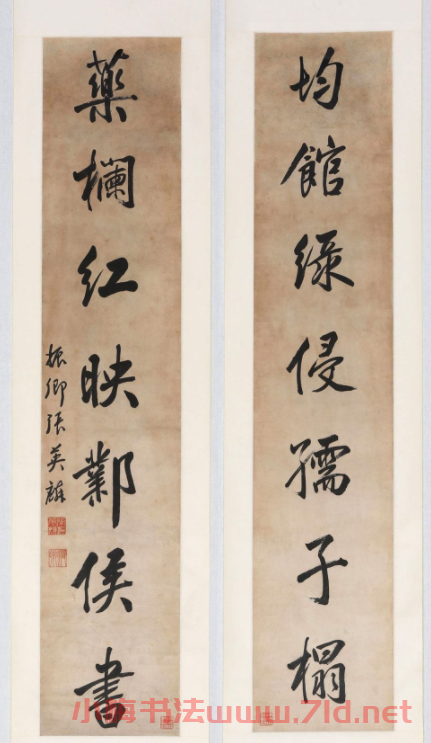 均館緑侵孺子榻
藥欄紅映鄴侯書
振卿張英麟
书法www.7ld.net